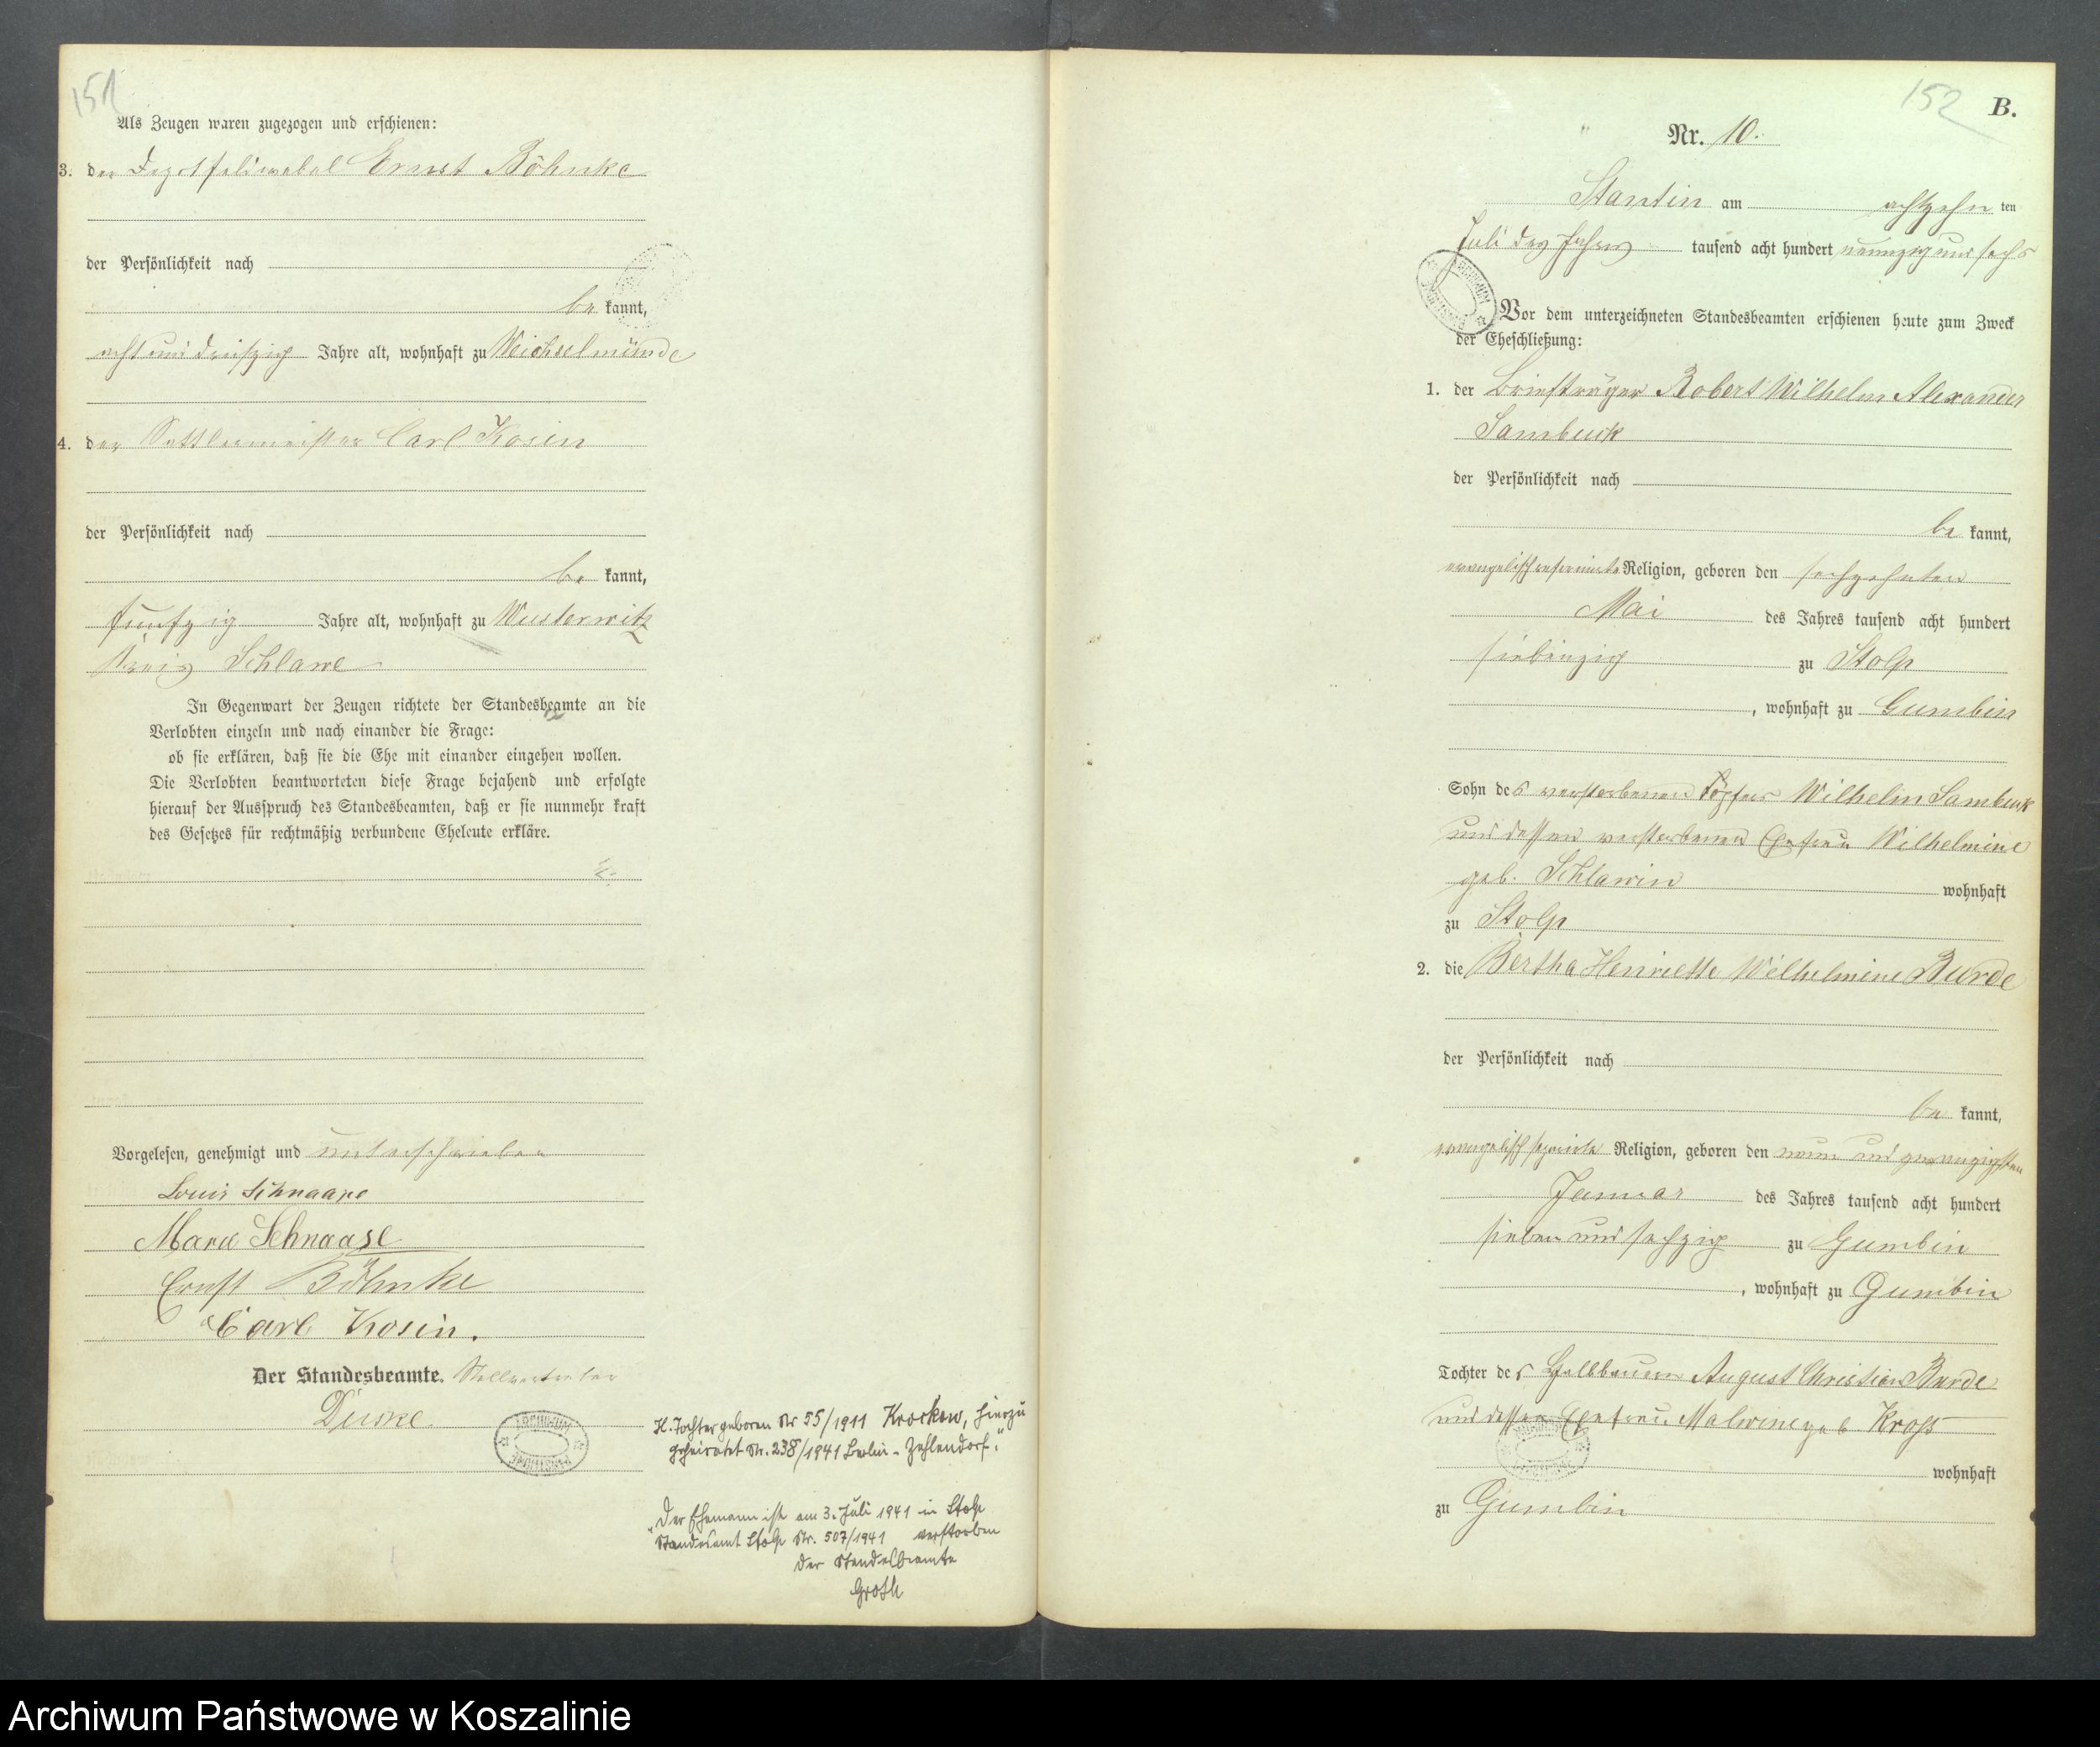 151
Als Zeugen waren zugezogen und erschienen:
3. der Depotfeldwebel Ernst Böhnke
der Persönlichkeit nach
be kannt,
acht und dreißzig Jahre alt, wohnhaft zu Weichselmünde
4. der Sattlermeister Carl Kosin
der Persönlichkeit nach
be kannt,
fünfzig Jahre alt, wohnhaft zu Wusterwitz
Kreis Schlawe
In Gegenwart der Zeugen richtete der Standesbeamte an die
Verlobten einzeln und nach einander die Frage:
ob sie erklären, daß sie die Ehe mit einander eingehen wollen.
Die Verlobten beantworteten diese Frage bejahend und erfolgte
hierauf der Ausspruch des Standesbeamten, daß er sie nunmehr kraft
des Gesetzes für rechtmäßig verbundene Eheleute erkläre.
Vorgelesen, genehmigt und unterschrieben
Louis Schnaase
Marie Schnaase
Ernst Böhnke
Carl Kosin.
Der Standesbeamte. Stellvertreter
K. Tochter geboren Nr 55/1911 Krockow, hierzu
geheiratet Nr. 238/1941 Berlin-Zehlendorf."
"Der Ehemann ist am 3. Juli 1941 in Stolp
Standesamt Stolp Nr. 507/1941 verstorben
Der Standesbeamte
Groth
152
B.
Nr. 10.
Stantin am achtzehn ten
Juli des Jahres tausend acht hundert neunzig und sechs
Vor dem unterzeichneten Standesbeamten erschienen heute zum Zweck
der Eheschließung:
1. der Briefträger Robert Wilhelm Alexander
Sambuck
der Persönlichkeit nach
be kannt,
evangelisch Religion, geboren den sechzehnten
Mai des Jahres tausend acht hundert
siebenzig zu Stolp
, wohnhaft zu Gumbin
Sohn des verstorbenen Töpfers Wilhelm Sambuck
und dessen verstorbenen Ehefrau Wilhelmine
geb. Schlawin wohnhaft
zu Stolp
2. die Bertha Henriette Wilhelmine Burde
der Persönlichkeit nach
be kannt,
evangelisch Religion, geboren den neun und zwanzigsten
Januar des Jahres tausend acht hundert
sieben und sechzig zu Gumbin
, wohnhaft zu Gumbin
Tochter des Halbbauern August Christian Burde
und dessen Ehefrau Malwine geb. Kroß
wohnhaft
zu Gumbin
Archiwum Państwowe w Koszalinie